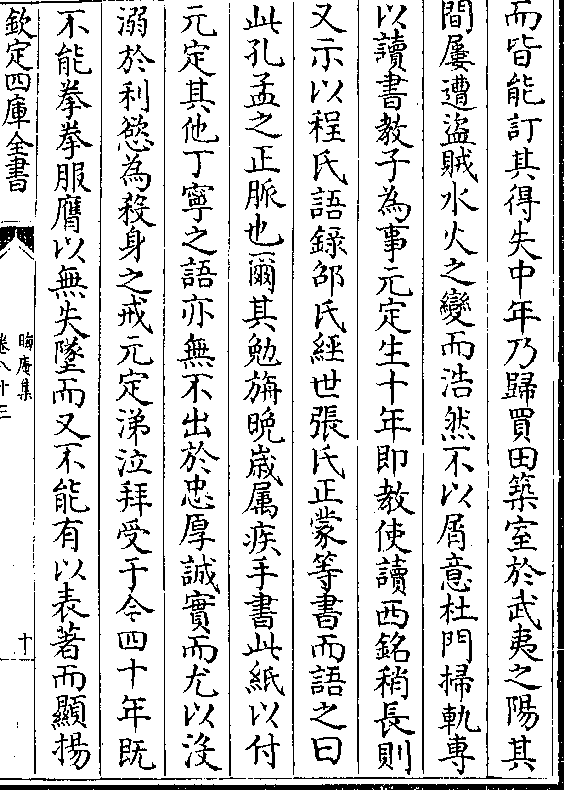 而皆能訂其得失中年乃歸買田築室於武夷之陽其
間屢遭盜賊水火之變而浩然不以屑意杜門掃軌専
以讀書教子為事元定生十年即教使讀西銘稍長則
又示以程氏語録邵氏經世張氏正蒙等書而語之曰
此孔孟之正脈也爾其勉旃晩歲属疾手書此紙以付
元定其他丁寧之語亦無不出於忠厚誠實而尤以沒
溺於利慾為殺身之戒元定涕泣拜受于今四十年既
不能拳拳服膺以無失墜而又不能有以表著而顯揚
欽定四庫全書
晦庵集
卷八十三
十